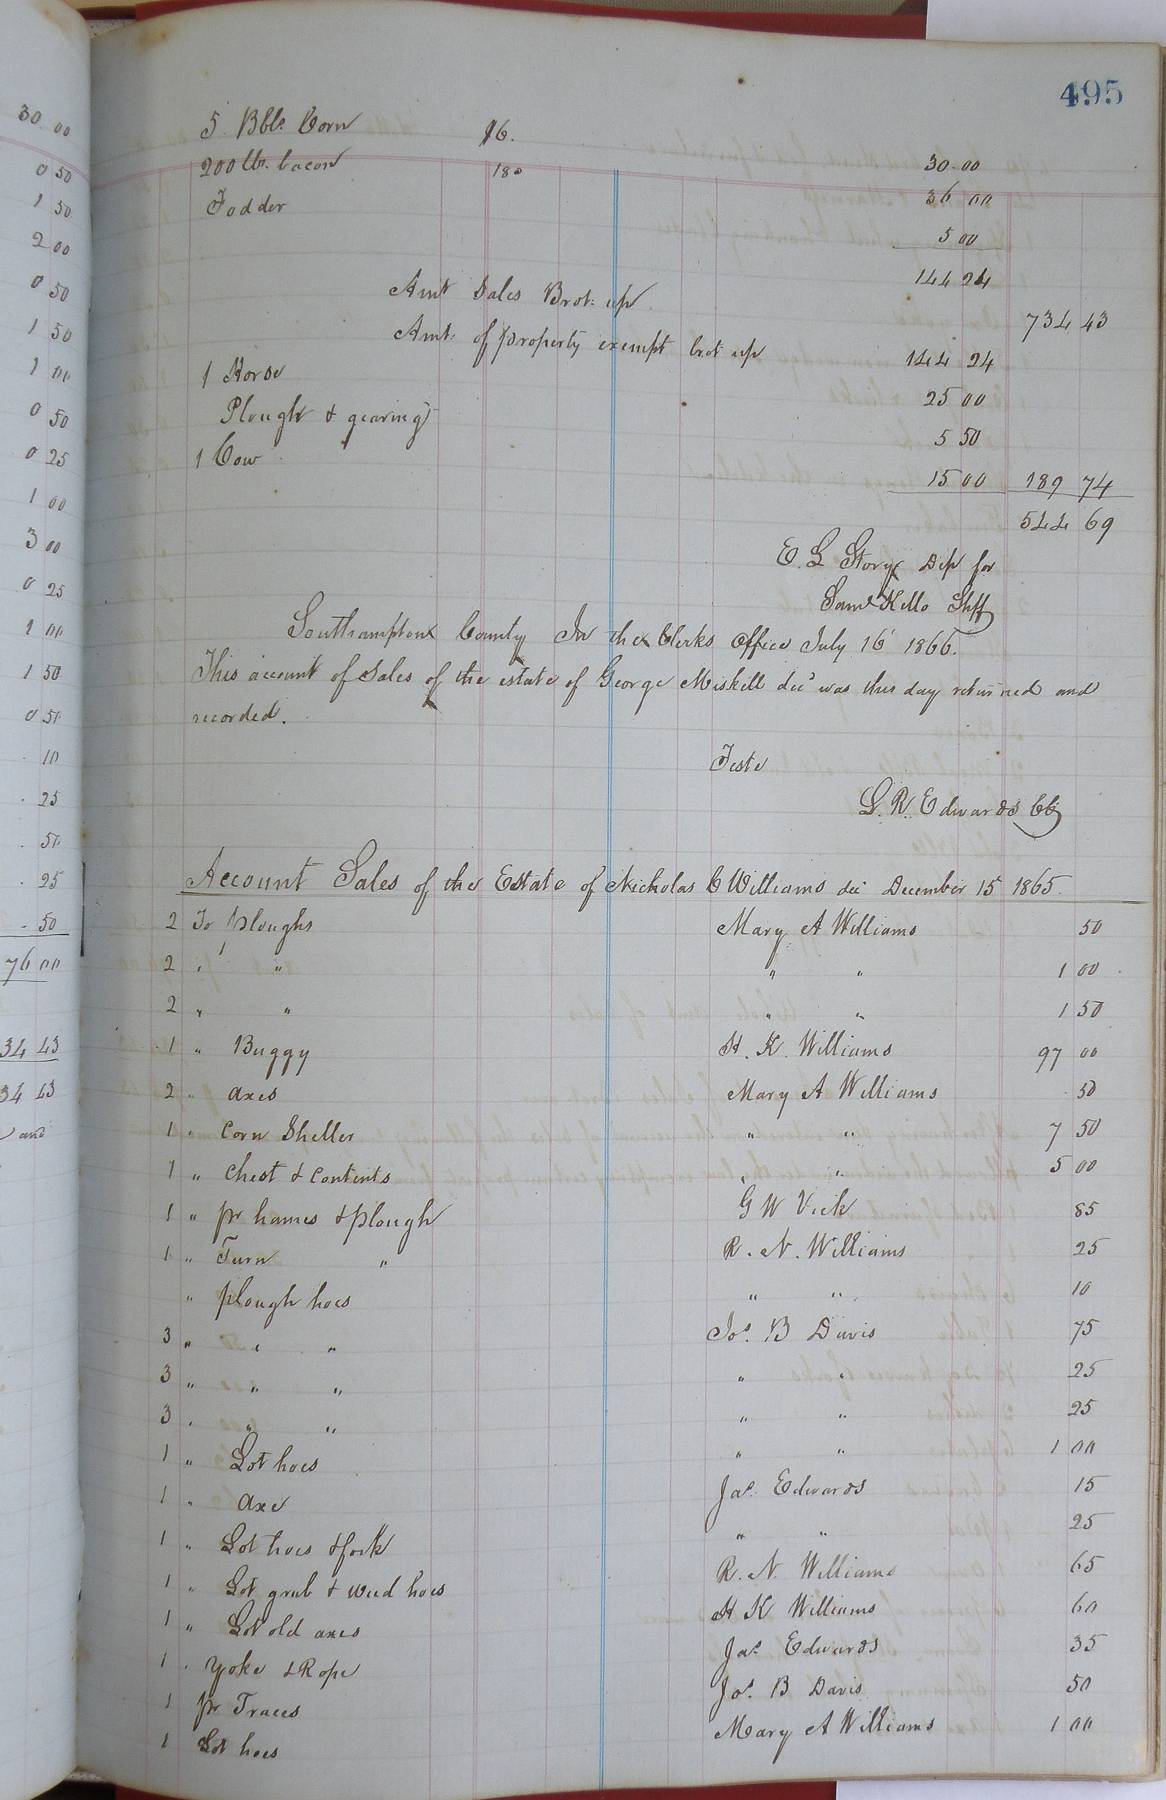 495
5 Bbls. Corn $6. 30.00
200 lb. bacon 180 36 00
Fodder 5 00
144 24
Amt Sales Brot. up 734 43
Amt. of property exempt brot up 144 24
1 Horse 25 00
Plough & gearing 5 50
1 Cow 15 00 189 74
544 69
E. L. Story Dep for
Saml Kello Shff
Southampton County In the Clerks Office July 16 1866.
This account of Sales of the estate of George Miskell dec was this day returned and
recorded.
Teste
L. R. Edwards Clk
Account Sales of the Estate of Nicholas C Williams dec December 15 1865.
2 To ploughs Mary A Williams 50
2 " " " " 1 00
2 " " " " 1 50
1 " Buggy H. K. Williams 97 00
2 " axes Mary A Williams 50
1 " Corn Sheller " " 7 50
1 " Chest & Contents " " 5 00
1 " pr hames & plough G W Vick 85
1 " Turn " R. N. Williams 25
" plough hoes " " 10
3 " " " Jos. B Davis 75
3 " " " " " 25
3 " " " " " 25
1 " Lot hoes " " 1 00
1 " Axe Jas. Edwards 15
1 " Lot hoes & fork " " 25
1 " Lot grub & weed hoes R. N. Williams 65
1 " Lot old axes H K Williams 60
1 " Yoke & Rope Jas. Edwards 35
1 pr Traces Jos. B Davis 50
1 Lot hoes Mary A Williams 1 00
30 00
0 50
1 50
2 00
0 50
1 50
1 00
0 50
0 25
1 00
3 00
0 25
1 00
1 50
0 50
10
25
50
25
50
76 00
34 43
34 43
and